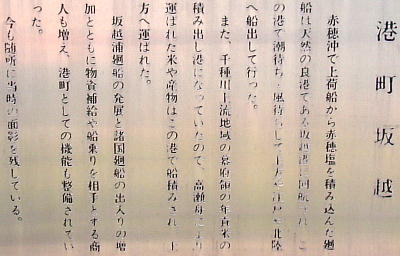 港町坂越
赤穂沖で上荷船から赤穂塩を積み込んだ廻
船は天然の良港である坂越港に回航され、こ
の港で潮待ち・風待ちして上方や江戸、北陸
へ船出して行った。
また、千種川上流地域の幕府領の年貢米の
積み出し港になっていたので、高瀬舟により
運ばれた米や産物はこの港で船積みされ、上
方へ運ばれた。
坂越浦廻船の発展と諸国廻船の出入りの増
加とともに物資補給や船乗りを相手とする商
人も増え、港町としての機能も整備されてい
った。
今も随所に当時の面影を残している。